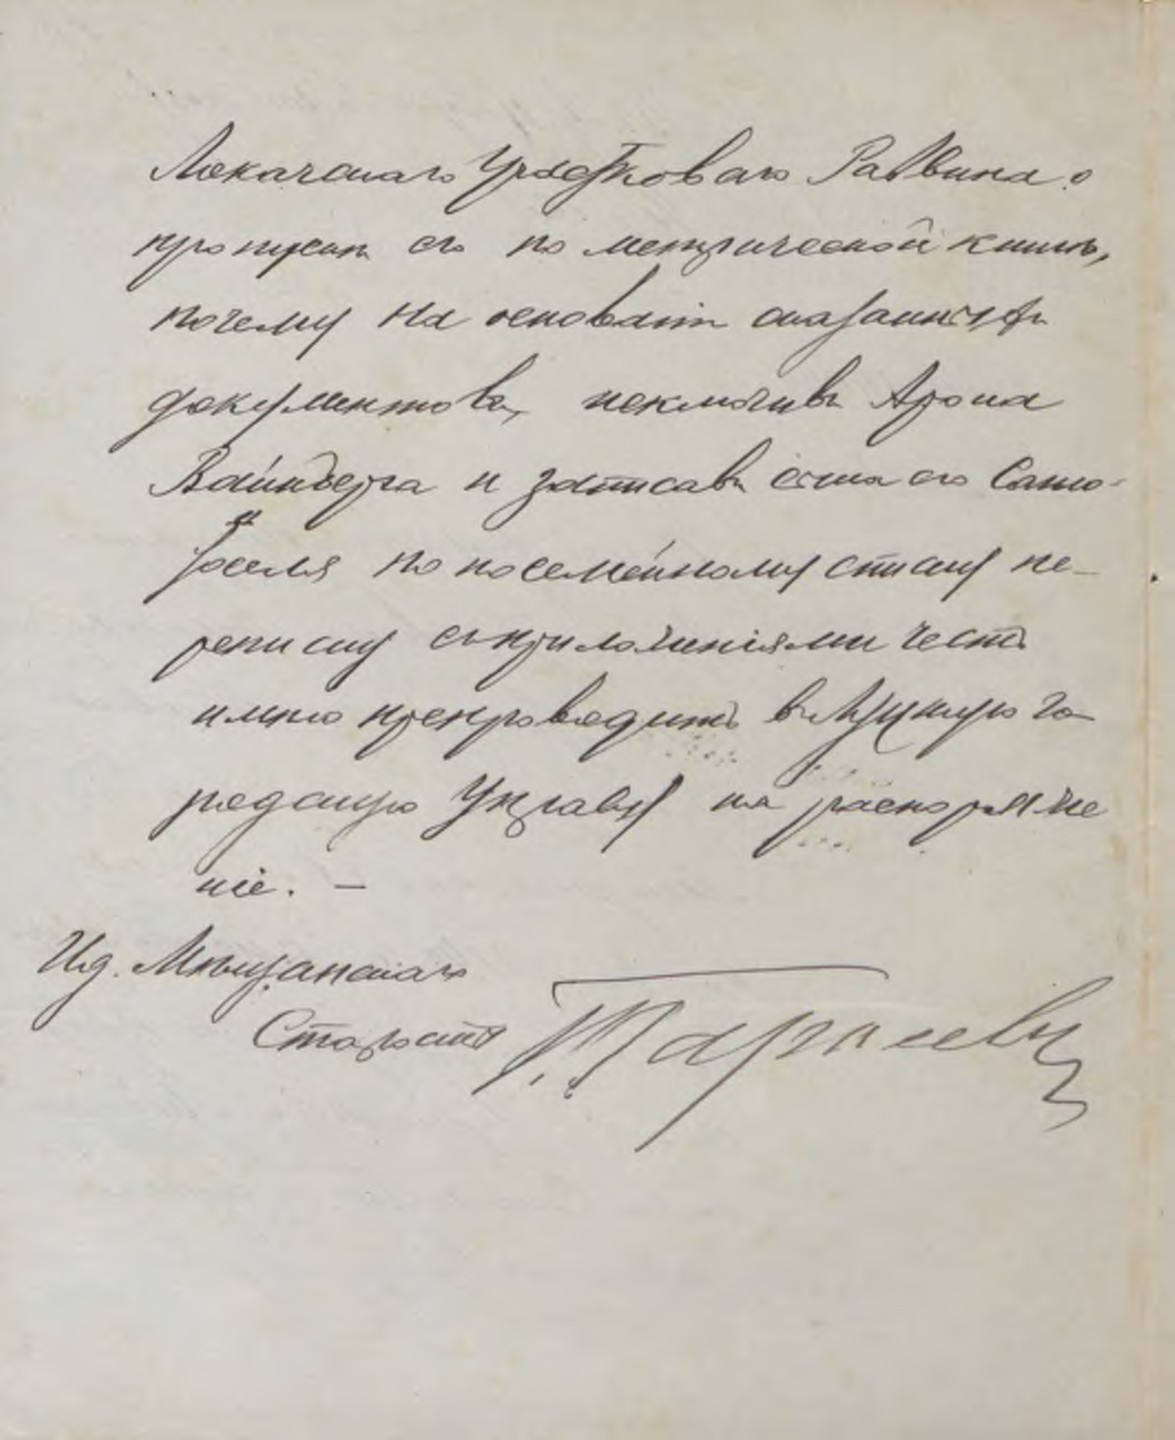 Локачскаго Участковаго Раввина о
пропускѣ его по метрической книгѣ,
почему на основаніи сказанныхъ
документовъ, исключивъ Арона
Вайнберга и записавъ сына его Само-
по посемейному списку пе-
реписку съ приложеніями честь
имѣю препроводить въ Луцкую го-
родскую Управу на распоряже
ніе. —
Ид. Мѣщанскаго
Старосты